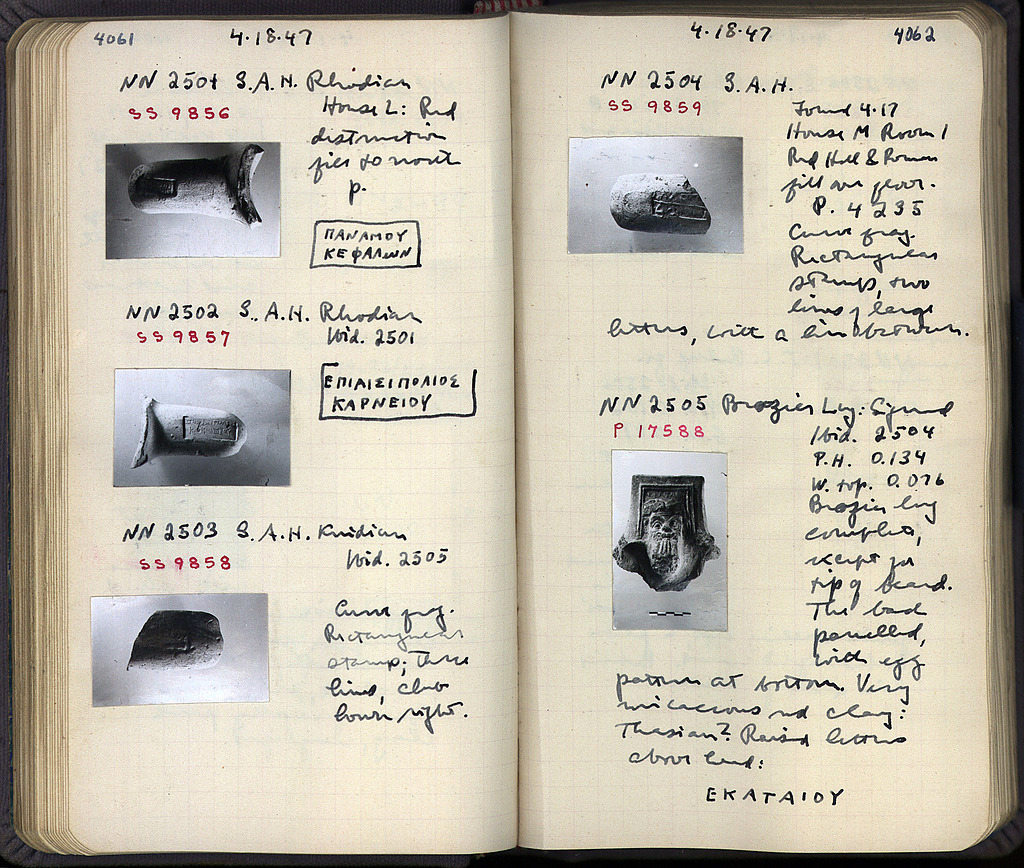 4061
4·18·47
NN 2501 S.A.H. Rhodian
SS 9856
House L: Red
distruction
fill to north
p.
ΠΑΝΑΜΟΥ
ΚΕΦΑΛΩΝ
NN 2502 S.A.H. Rhodian
SS 9857
Ibid. 2501
ΕΠΙΑΙΣΙΠΟΛΙΟΣ
ΚΑΡΝΕΙΟΥ
NN 2503 S.A.H. Knidian
SS 9858
Ibid. 2505
Curve frag.
Rectangular
stamp; Three
lines, club
lower right.
4·18·47
4062
NN 2504 S.A.H.
SS 9859
Found 4·17
House M Room 1
Red Hell & Roman
fill over floor.
P. 4235
Curve frag.
Rectangular
stamp, two
lines of large
letters, with a line between.
NN 2505 Brazier Lug: Signed
P 17588
Ibid. 2504
P.H. 0.134
W. top. 0.076
Brazier lug
complete,
except for
tip of beard.
The back
panelled,
with egg
pattern at bottom. Very
micaceous red clay:
Thasian? Raised letters
above head:
ΕΚΑΤΑΙΟΥ